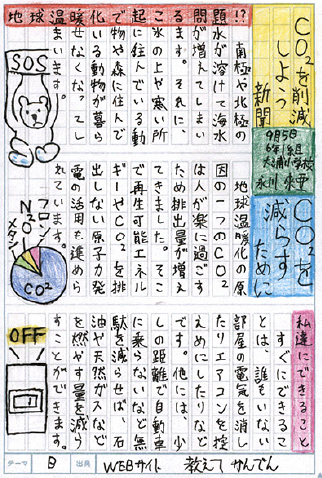 地球温暖化で起こる問題!?
CO₂を削減
しよう
新聞
9月5日
6年1組
大浦小学校
南極や北極の
氷が溶けて海水
が増えてしまい
ます。それに、
氷の上や寒い所
に住んでいる動
物や森に住んで
いる動物が暮ら
せなくなってし
まいます。
SOS
CO₂を
減らす
ために
地球温暖化の原
因の一つのCO₂
は人が楽に過ごす
ため排出量が増え
てきました。そこ
で再生可能エネル
ギーやCO₂を排
出しない原子力発
電の活用を進めら
れています。
フロン
N₂O
メタン
CO₂
私達にできること
すぐにできるこ
とは、誰もいない
部屋の電気を消し
たりエアコンを控
えめにしたりなど
です。他には、少
しの距離で自動車
に乗らないなど無
駄を減らせば、石
油や天然ガスなど
を燃やす量を減ら
すことができます。
OFF
テーマ B 出典 WEBサイト 教えて かんでん